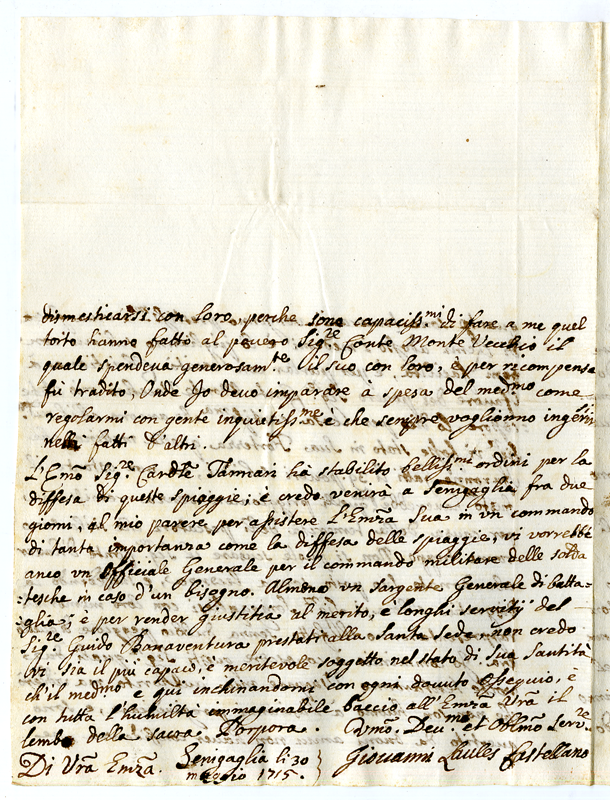 dismesticarsi con loro, perche sono capaciss.mi di fare a me quel
torto hanno fatto al povero Sig.re Conte Monte Vecchio il
quale spendeva generosam.te il suo con loro, è per ricompensa
fù tradito, Onde Jo devo imparare à spesa del med.mo come
regolarmi con gente inquietiss.me è che sempre vogliono ingerirsi
nelli fatti d'altri.
L'Emo Sig.re Card.le Tannari ha stabilito belliss.mi ordini per la
diffesa di queste spiaggie; è credo venirà a Senigaglia fra due
giorni, al mio parere per assistere L'Emza Sua in un commando
di tanta importanza come la diffesa delle spiaggie, vi vorrebbe
anco un Officiale Generale per il commando militare delle solda
=tesche in caso d'un bisogno. Almeno un Sargente Generale di batta=
=glia; è per render giustitia al merito, è longhi servitij del
Sig.re Guido Bonaventura prestati alla Santa Sede non credo
vi sia il più capace, è meritevole soggetto nel stato di Sua Santità
ch'il med.mo è qui inchinandomi con ogni dovuto ossequio, è
con tutta l'humiltà immaginabile baccio all'Emza Vra il
lembo della Sacra Porpora. Vmo. Deu.mo et Oblmo Serv.re
Di Vra Emza. Senigaglia li 30 Giovanni Laules Castellano
maggio 1715.